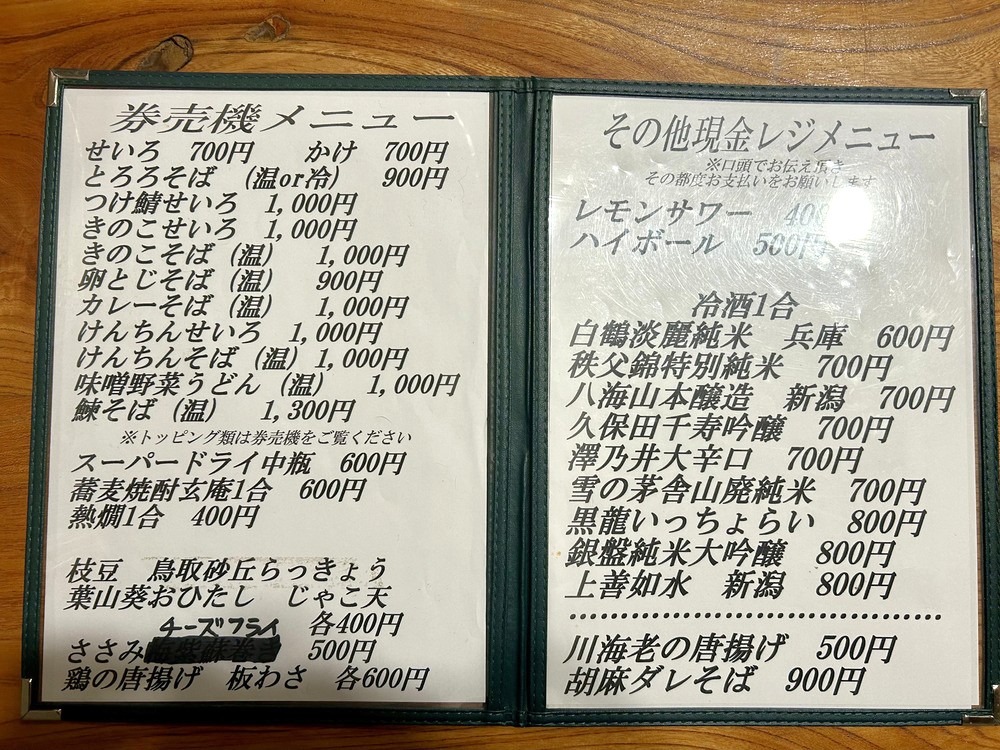 券売機メニュー
せいろ 700円 かけ 700円
とろろそば (温or冷) 900円
つけ鯖せいろ 1,000円
きのこせいろ 1,000円
きのこそば (温) 1,000円
卵とじそば (温) 900円
カレーそば (温) 1,000円
けんちんせいろ 1,000円
けんちんそば (温) 1,000円
味噌野菜うどん (温) 1,000円
鰊そば (温) 1,300円
※トッピング類は券売機をご覧ください
スーパードライ中瓶 600円
蕎麦焼酎玄庵1合 600円
熱燗1合 400円
枝豆 鳥取砂丘らっきょう
葉山葵おひたし じゃこ天
各400円
チーズフライ
ささみ 500円
鶏の唐揚げ 板わさ 各600円
その他現金レジメニュー
※口頭でお伝え頂き
その都度お支払いをお願いします
レモンサワー
ハイボール 500円
冷酒1合
白鶴淡麗純米 兵庫 600円
秩父錦特別純米 700円
八海山本醸造 新潟 700円
久保田千寿吟醸 700円
澤乃井大辛口 700円
雪の茅舎山廃純米 700円
黒龍いっちょらい 800円
銀盤純米大吟醸 800円
上善如水 新潟 800円
川海老の唐揚げ 500円
胡麻ダレそば 900円